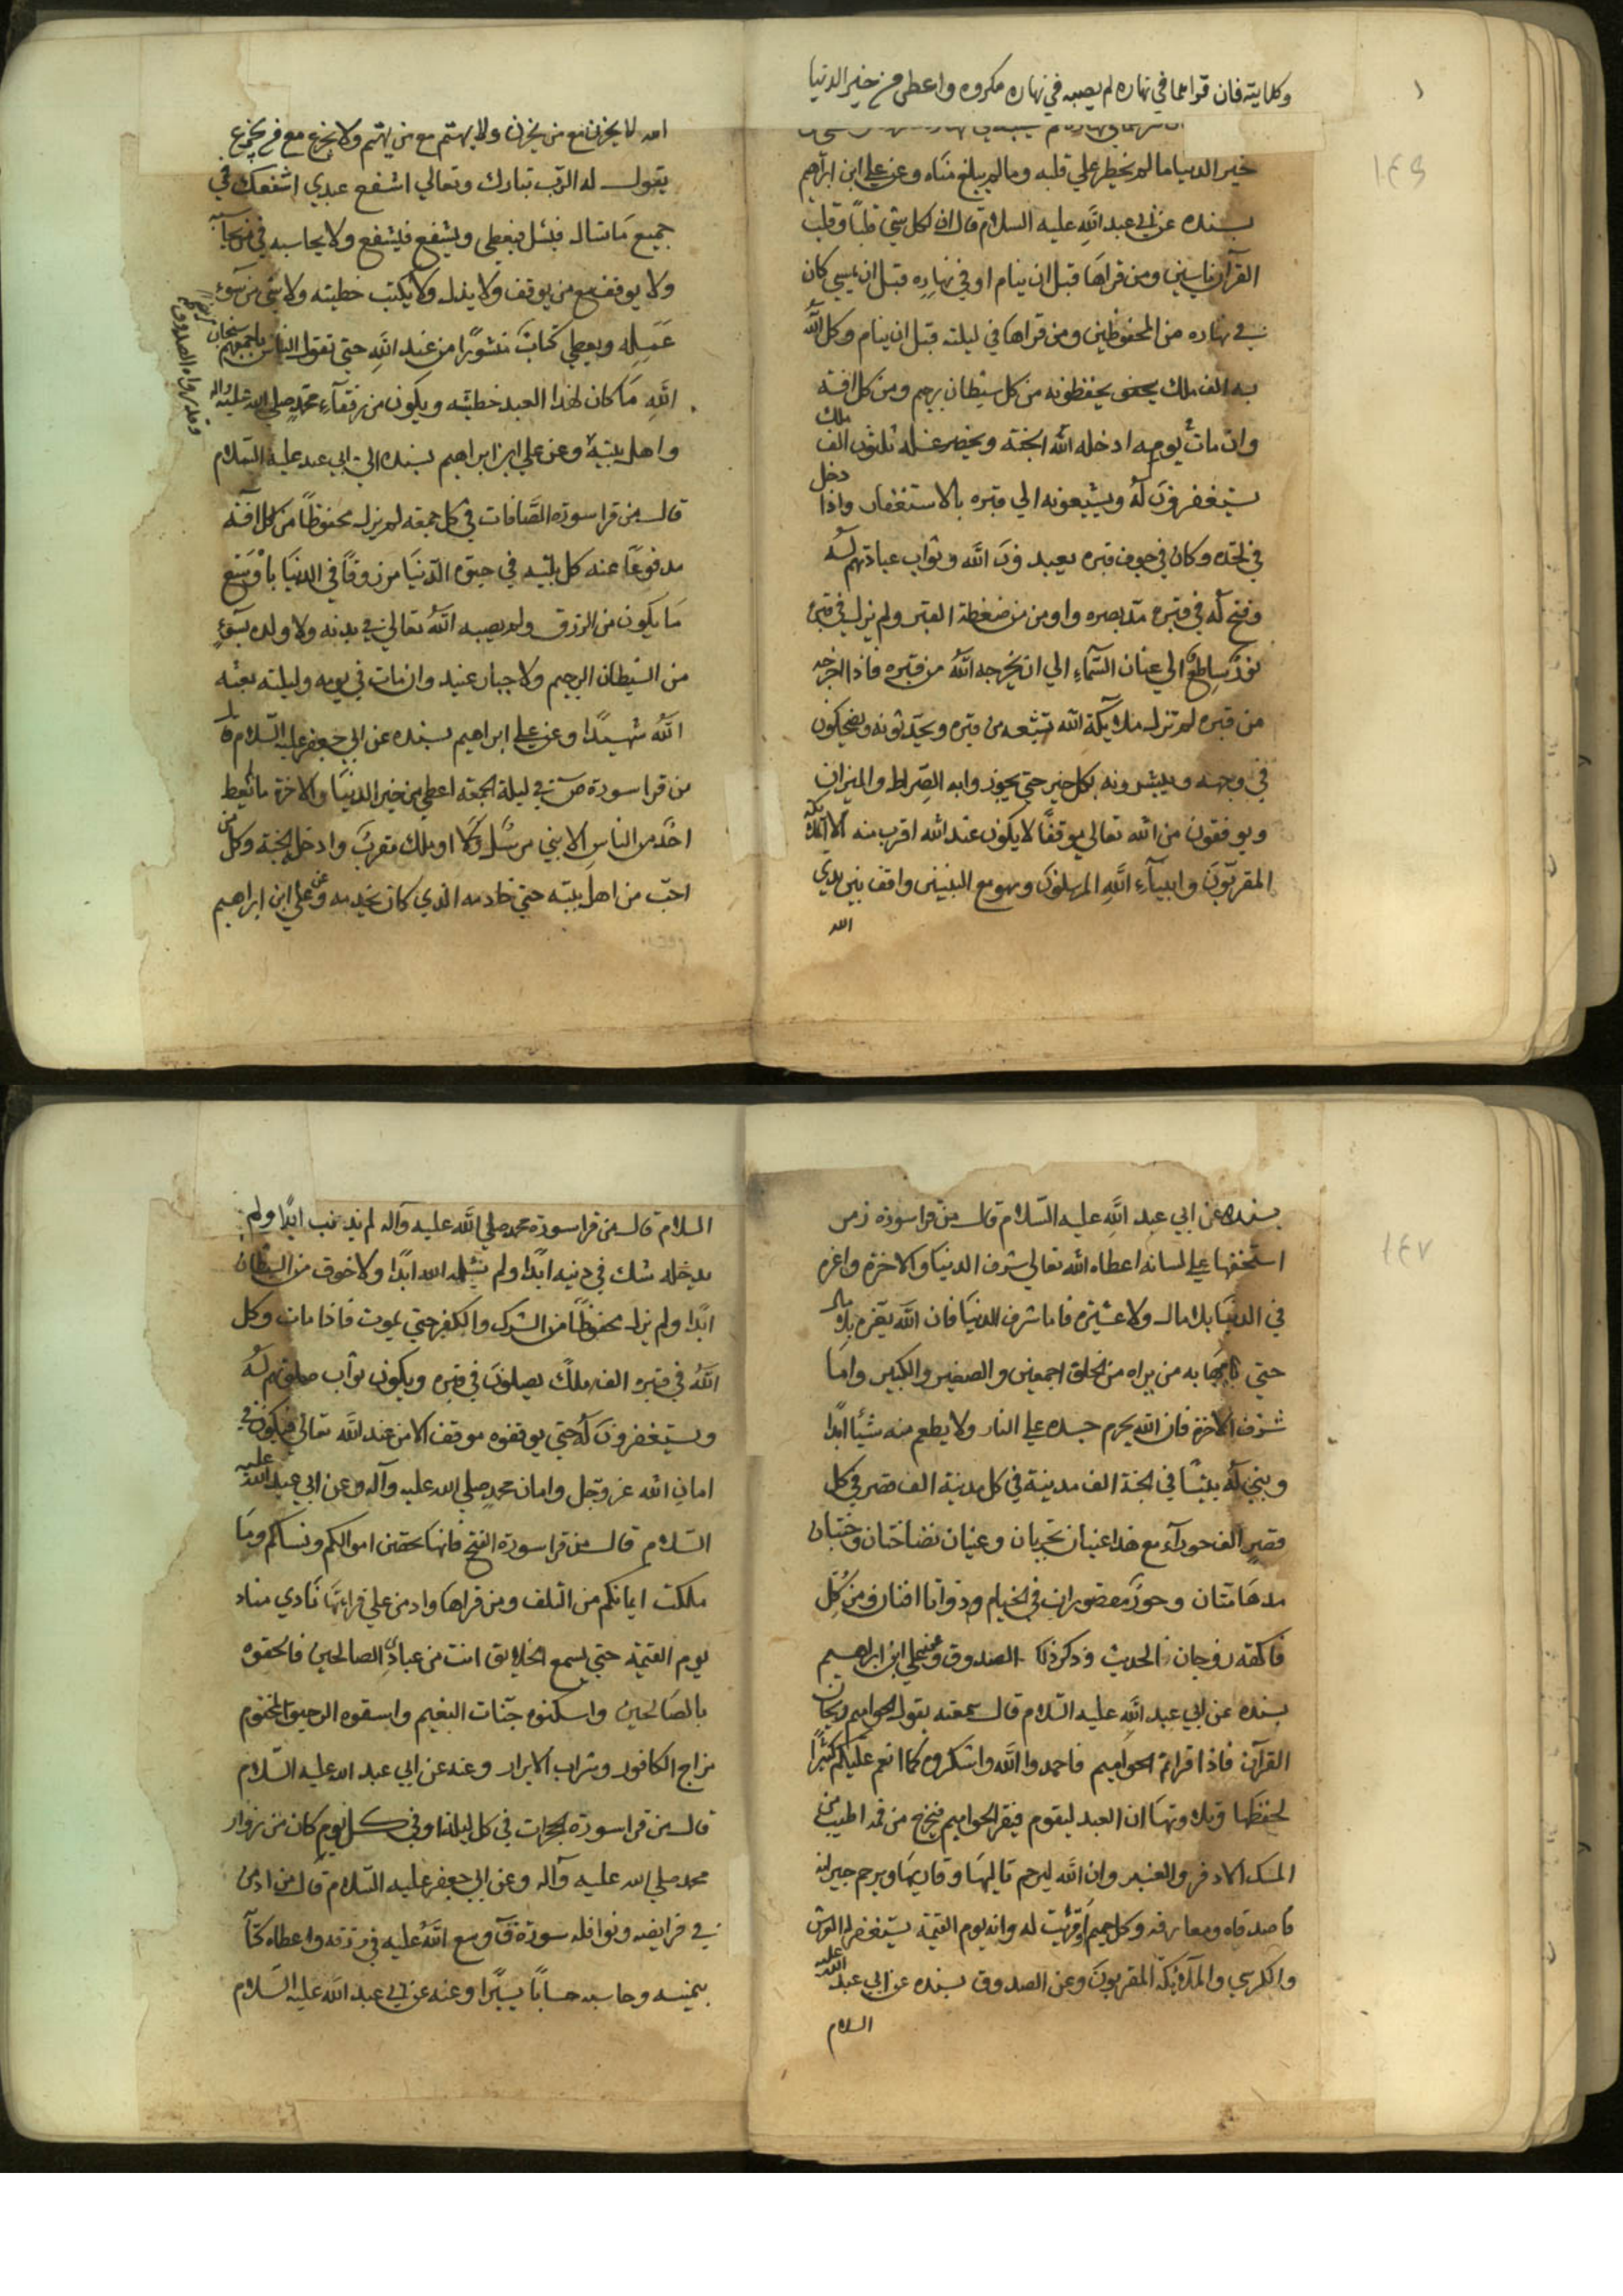 وكلايته فان قراهما في نهاره لم يصبه في نهاره مكروه واعطى من خير الدنيا
خير الدنيا ما لم يخطر علي قلبه وما لم يبلغ مناه وعن علي ابن ابراهيم
بسنده عن ابي عبد الله عليه السلام قال ان لكل شي قلبًا وقلب
القرآن ياسين ومن قراها قبل ان ينام او في نهاره قبل ان يمسي كان
في نهاره من المحفوظين ومن قراها في ليلته قبل ان ينام وكل الله
به الف ملك يحفظونه من كل شيطان رجيم ومن كل افة
وان مات يومه ادخله الله الجنة ويحضر غسله ثلثون الف ملك
يستغفرون له ويشيعونه الي قبره بالاستغفار واذا دخل
في لحده وكان في جوف قبره يعبدون الله وثواب عبادتهم له
وفتح له في قبره مد بصره واومن من ضغطة القبر ولم يزل في قبره
نور ساطع الي عنان السماء الي ان يخرجه الله من قبره فاذا اخرجه
من قبره لم تزل ملايكة الله تشيعه من قبره ويحدثونه ويضحكون
في وجهه ويبشرونه بكل خير حتي يجوزوا به الصراط والميزان
ويوقفون من الله تعالي موقفًا لا يكون عند الله اقرب منه الا ملائكة
المقربون وانبياء الله المرسلون وهو مع النبيين واقف بين يدي
الله
١٤٦
الله لا يحزن مع من يحزن ولا يهتم مع من يهتم ولا يجزع مع من يجزع
يقول له الرب تبارك وتعالي اشفع عبدي اشفعك في
جميع ما تساله فيسئل فيعطي ويشفع فيشفع ولا يحاسبه في من يحاسب
ولا يوقف مع من يوقف ولا يذله ولا يكتب خطيته ولا شي من سوء
عمله ويعطي كتاب منشورًا من عند الله حتي تقول الناس باجمعهم سبحان
الله ما كان لهذا العبد خطيئه ويكون من رفقاء محمد صلي الله عليه واله
واهل بيته وعن علي ابن ابراهيم بسنده الي ابي عبد عليه السلام
قال من قرا سورة الصافات في كل جمعه لم يزل محفوظًا من كل افة
مدفوعًا عنه كل بليه في حيوة الدنيا مرزوقًا في الدنيا باوسع
ما يكون من الرزق ولم يصبه الله تعالي في بدنه ولا ولده بسوء
من الشيطان الرجيم ولا جبار عنيد وان مات في يومه وليلته بعثه
الله شهيدًا وعن علي ابراهيم بسنده عن ابي جعفر عليه السلام قال
من قرا سورة ص في ليلة الجمعة اعطي من خير الدنيا والاخرة ما لم يعط
احدًا من الناس الا نبي مرسل او ملك مقرب وادخل الجنة وكل من
احب من اهل بيته حتي خادمه الذي كان يخدمه وعن علي ابن ابراهيم
وقد رواه الصدوق
بسنده عن ابي عبد الله عليه السلام قال من قرا سورة زمر
استخفها علي لسانه اعطاه الله تعالي شرف الدنيا والاخرة واعزه
في الدنيا بلا مال ولا عشيرة فاما شرف الدنيا فان الله يعزه بلا مال
حتي يهابه من يراه من الخلق اجمعين والصغير والكبير واما
شرف الاخرة فان الله يحرم جسده علي النار ولا يطعم منه شيئا ابدًا
ويبني له بيتًا في الجنة الف مدينة في كل مدينة الف قصر في كل
قصر الف حوراء مع هذا عينان تجريان وعينان نضاختان وجنتان
مدهامتان وحور مقصورات في الخيام وذواتا افنان ومن كل
فاكهة زوجان الحديث وذكر ذلك الصدوق وعن علي ابن ابراهيم
بسنده عن ابي عبد الله عليه السلام قال سمعته يقول الحواميم ريحان
القرآن فاذا قراتم الحواميم فاحمدوا الله واشكروه كما انعم عليكم كثيرًا
لحفظها وتلاوتها ان العبد ليقوم فيقرا الحواميم فيخرج من فمه اطيب من
المسك الاذفر والعنبر وان الله ليرحم تاليها وقاريها ويرحم جيرانه
واصدقاه ومعارفه وكل حميم او قريب له وانه يوم القيمة يستغفر له العرش
والكرسي والملائكة المقربون وعن الصدوق بسنده عن ابي عبد الله عليه
السلام
١٤٧
السلام قال من قرا سورة محمد صلي الله عليه وآله لم يذنب ابدًا ولم
يدخله شك في دينه ابدًا ولم يبتله الله ابدًا ولا خوف من السلطان
ابدًا ولم يزل محفوظًا من الشرك والكفر حتي يموت فاذا مات وكل
الله في قبره الف ملك يصلون في قبره ويكون ثواب صلوتهم له
ويستغفرون له حتي يوقفوه موقف الامن عند الله تعالي فيكون في
امان الله عز وجل وامان محمد صلي الله عليه وآله وعن ابي عبد الله عليه
السلام قال من قرا سورة الفتح فانها تحصن اموالكم ونساكم وما
ملكت ايمانكم من التلف ومن قراها وادمن علي قرائتها نادي مناد
يوم القيمة حتي يسمع الخلايق انت من عبادي الصالحين فالحقوه
بالصالحين واسكنوه جنات النعيم واسقوه الرحيق المختوم
مزاج الكافور وشراب الابرار وعنه عن ابي عبد الله عليه السلام
قال من قرا سورة الحجرات في كل ليله او في كل يوم كان من زوار
محمد صلي الله عليه وآله وعن ابي جعفر عليه السلام قال من ادمن
في فرايضه ونوافله سورة ق وسع الله عليه في رزقه واعطاه كتابه
بيمينه وحاسبه حسابًا يسيرًا وعنه عن ابي عبد الله عليه السلام